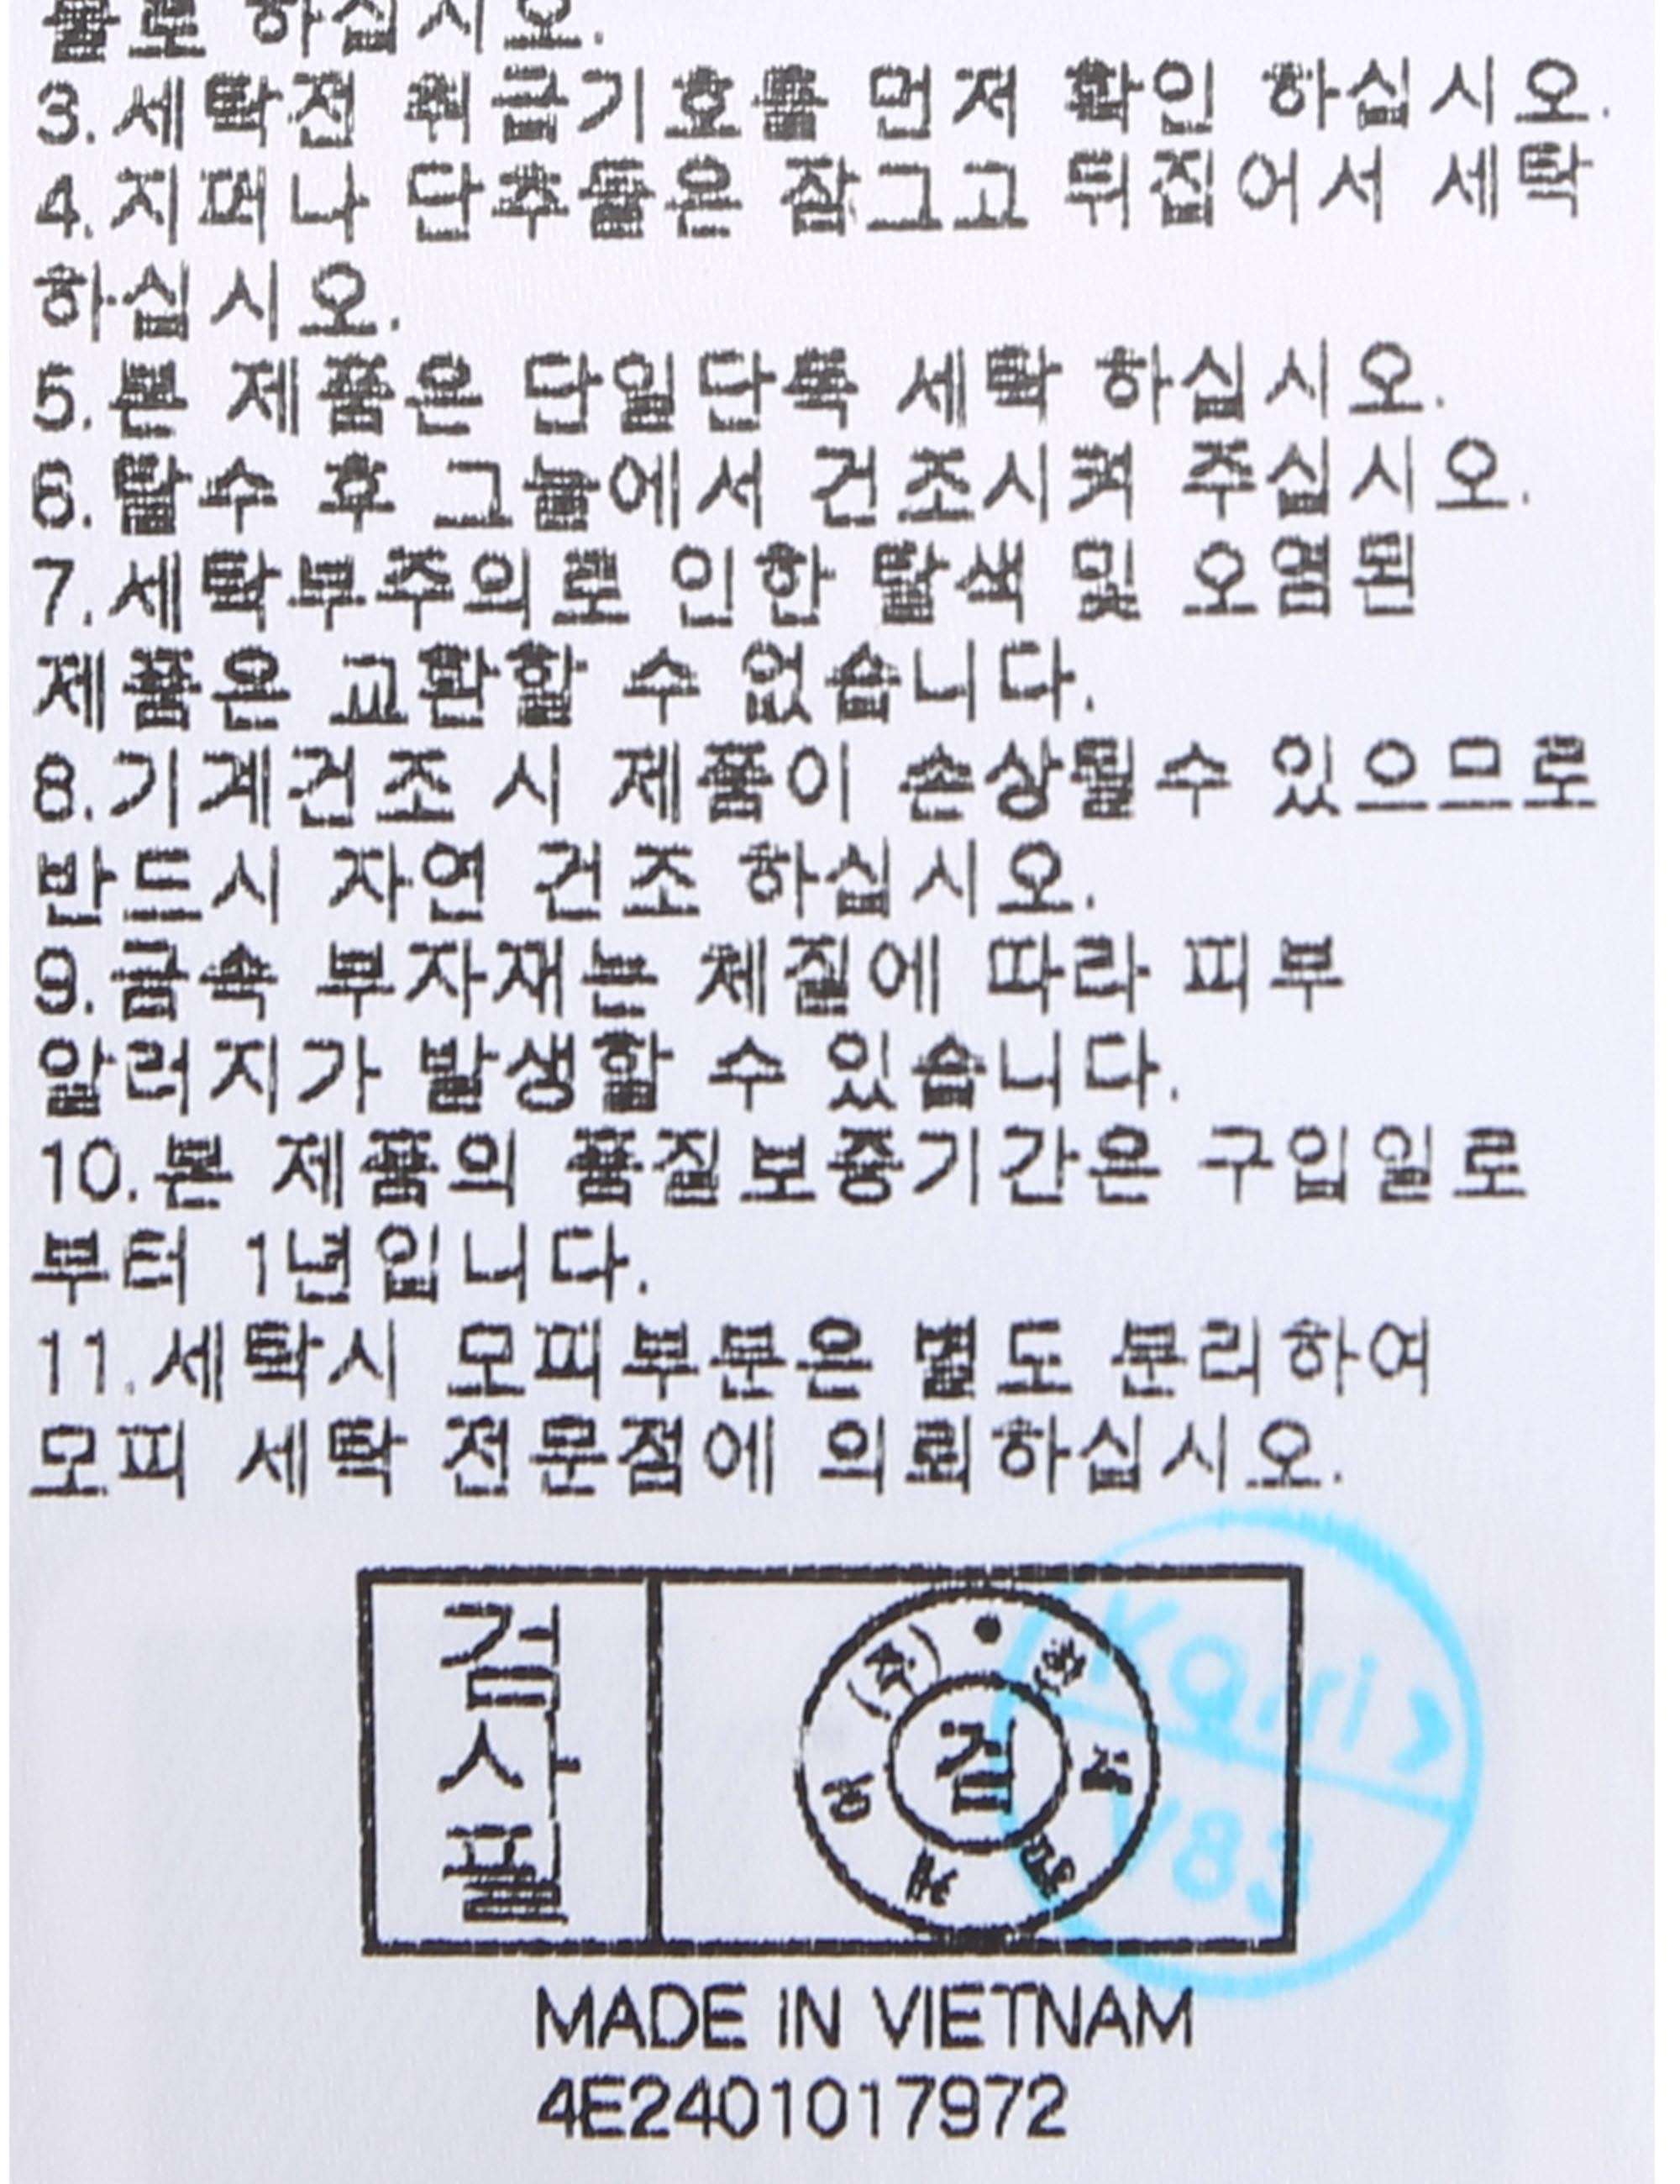 물로 하십시오.
3.세탁전 취급기호를 먼저 확인 하십시오.
4.지퍼나 단추들은 잠그고 뒤집어서 세탁
하십시오.
5.본 제품은 단일단독 세탁 하십시오.
6.탈수 후 그늘에서 건조시켜 주십시오.
7.세탁부주의로 인한 탈색 및 오염된
제품은 교환할 수 없습니다.
8.기계건조 시 제품이 손상될수 있으므로
반드시 자연 건조 하십시오.
9.금속 부자재는 체질에 따라 피부
알러지가 발생할 수 있습니다.
10.본 제품의 품질보증기간은 구입일로
부터 1년입니다.
11.세탁시 모피부분은 별도 분리하여
모피 세탁 전문점에 의뢰하십시오.
검사필
검
V83
MADE IN VIETNAM
4E2401017972